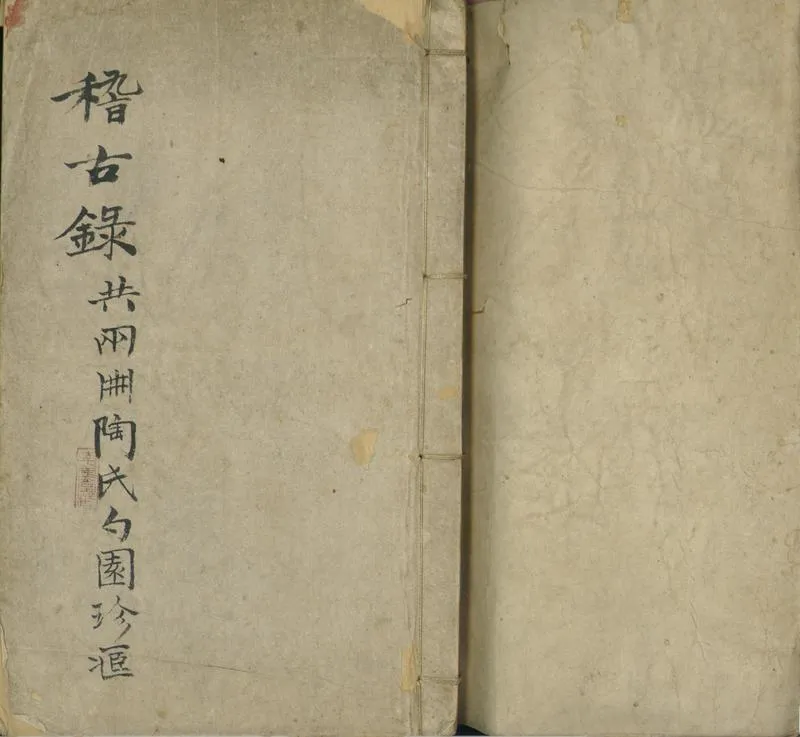 稽古錄共兩冊陶氏勺園珍